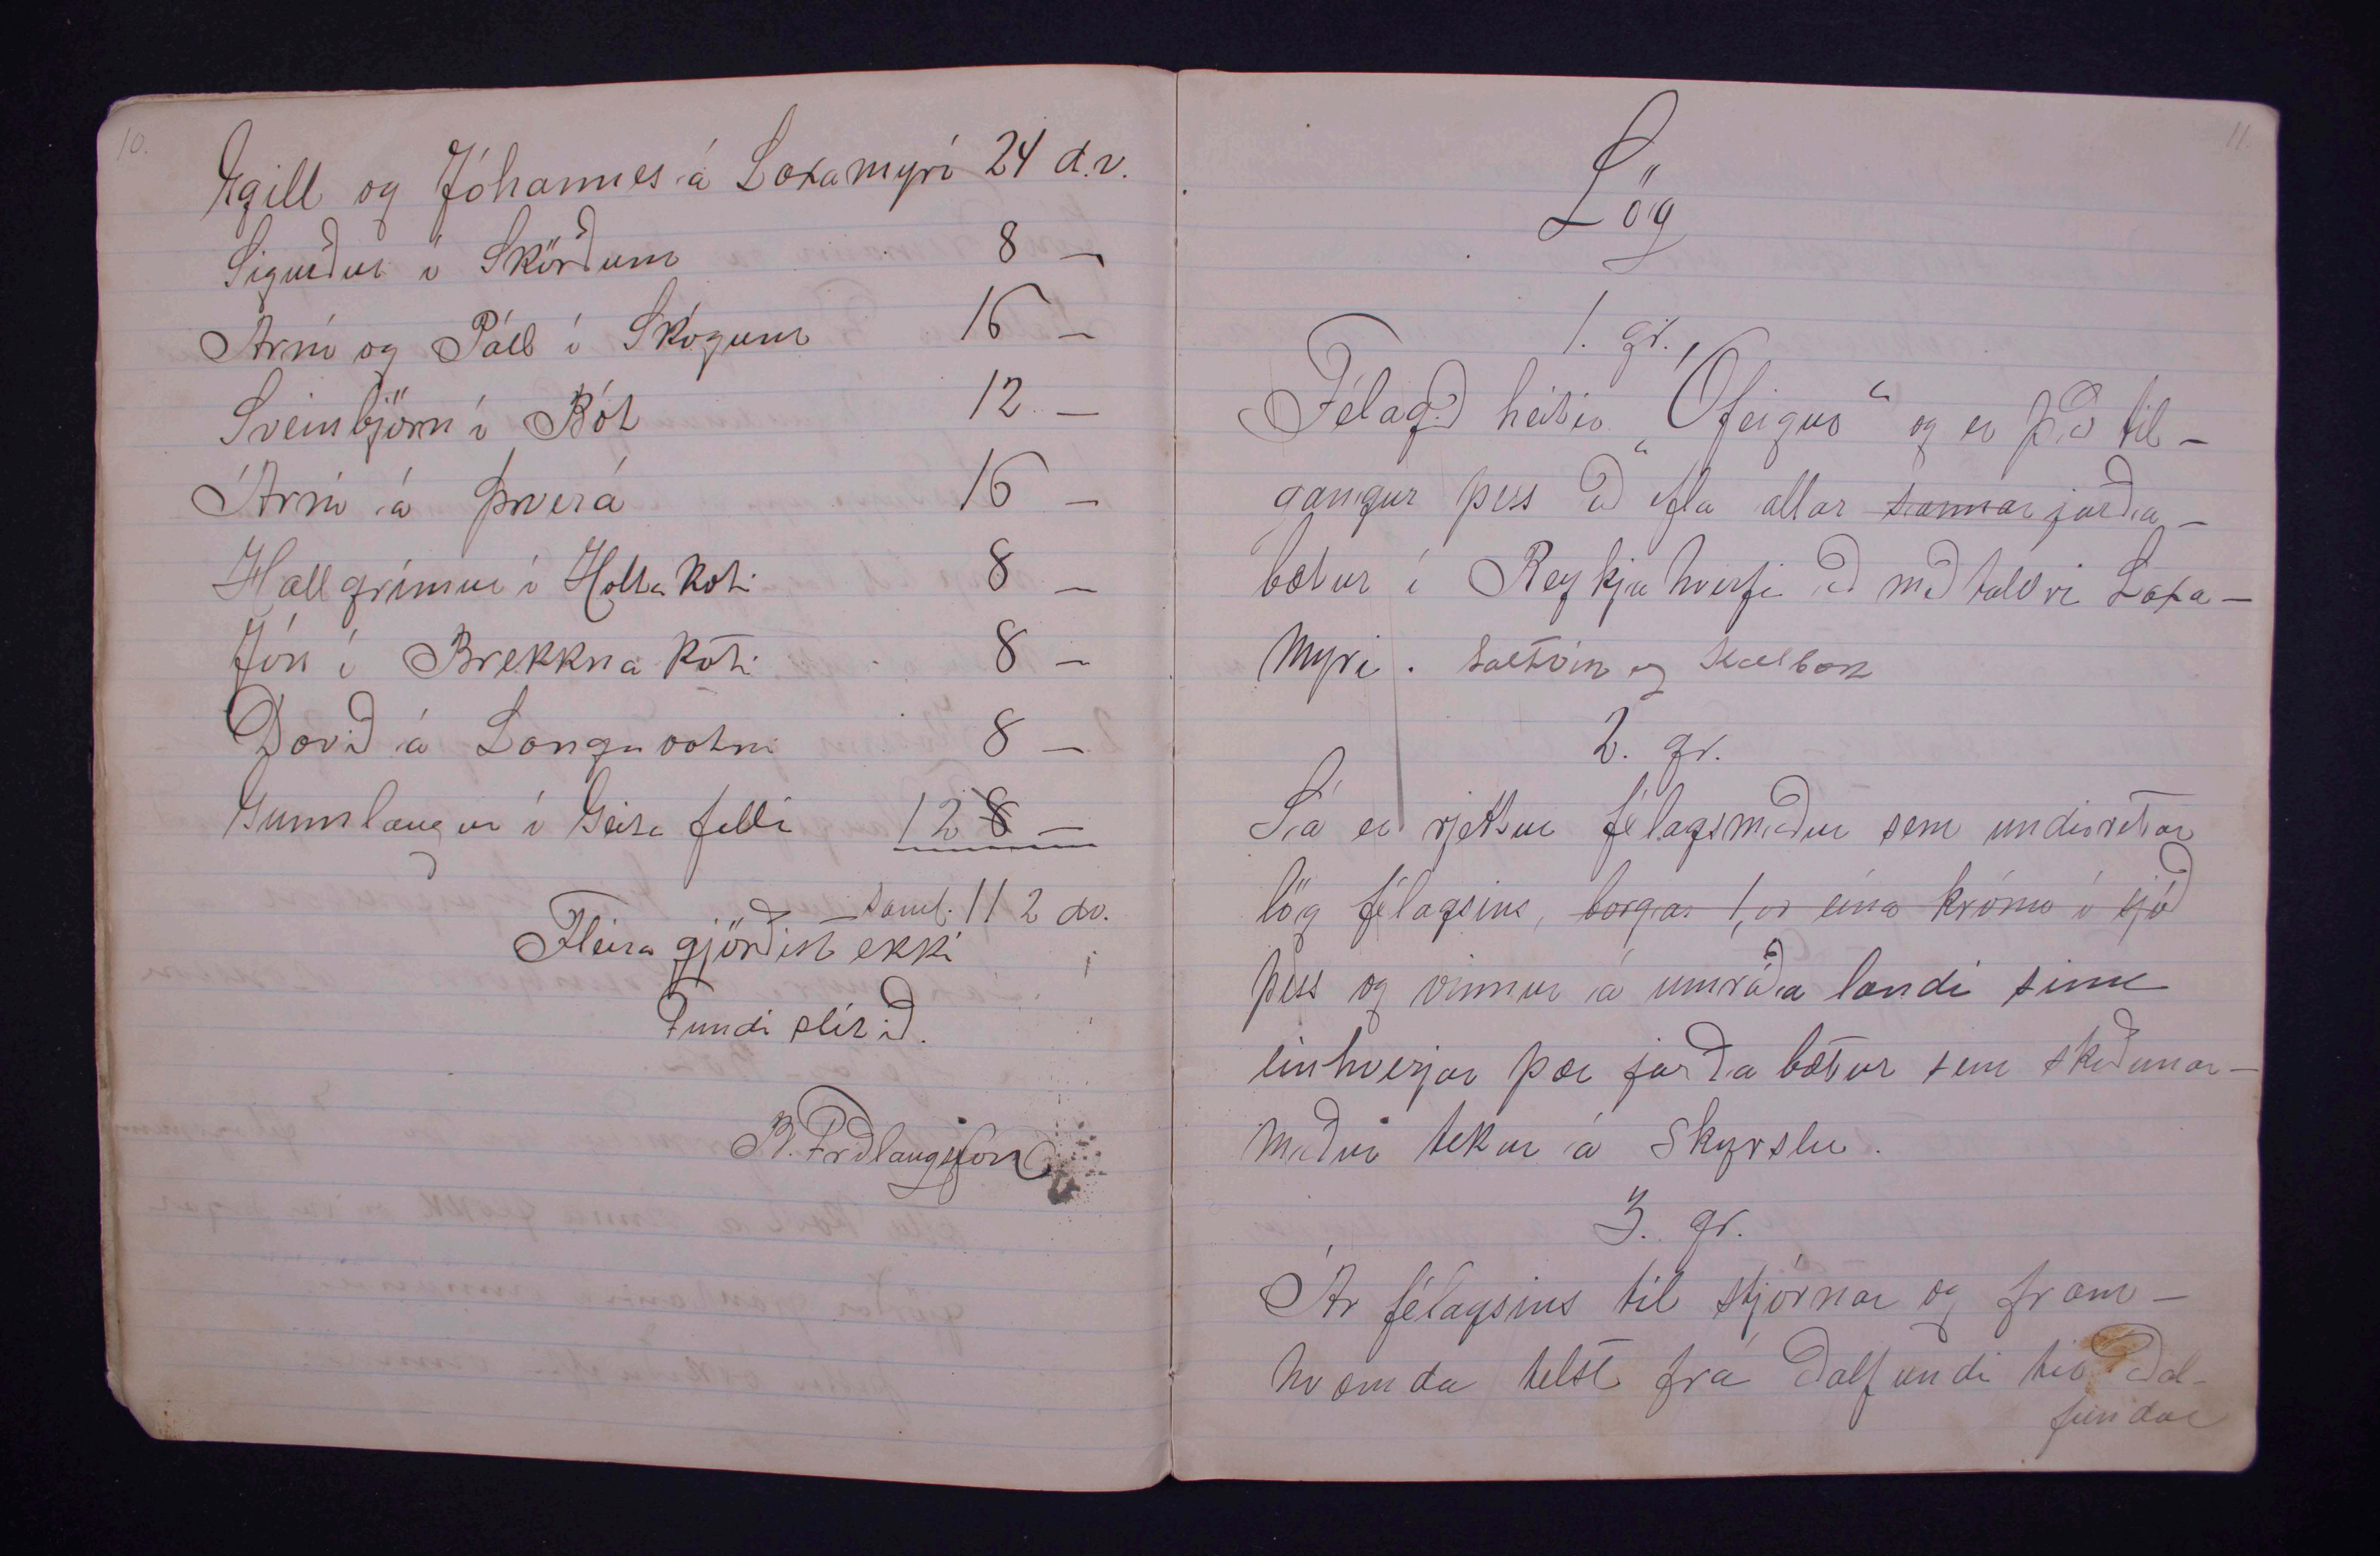 10.
Egill og Jóhannes á Laxamýri 24 d.v.
Sigurður í Skörðum 8 —
Árni og Páll í Skógum 16 —
Sveinbjörn í Bót 12 —
Árni á Þverá 16 —
Hallgrímur í Holtakoti 8 —
Jón í Brekknakoti 8 —
Davið á Langavatni 8 —
Gunnlaugur í Geitafelli 12 8 —
Saml. 112 dv.
Fleira gjörðist ekki
Fundi slitið.
B. Frðlaugsson
11.
Lög
1. gr.
Félagið heitir „Ófeigur“ og er það til-
gangur þess að efla allar sannar jarða-
bætur í Reykjahverfi að meðtaldri Laxa-
mýri. Saltvík og Kaldbak
2. gr.
Sá er rjettur félagsmaður sem undirritar
lög félagsins, borgar 1, er eina krónu í sjóð
þess og vinnur á umráða landi sínu
einhverjar þær jarðabætur sem skoðunar-
maður tekur á skyrslu.
3. gr.
Ár félagsins til stjórnar og fram-
kvæmda telst frá aðalfundi til aðal-
fundar